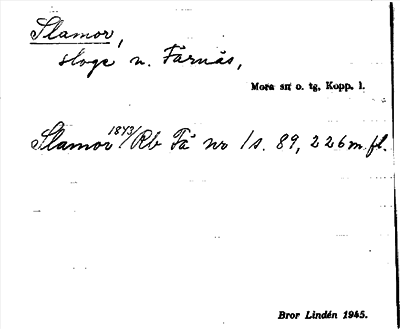 Slamor,
sloge n. Färnäs,
Mora sn o. tg, Kopp. l.
Slamor 1873/Rb Fä nr 1 s. 89, 226 m. fl.
Bror Lindén 1945.